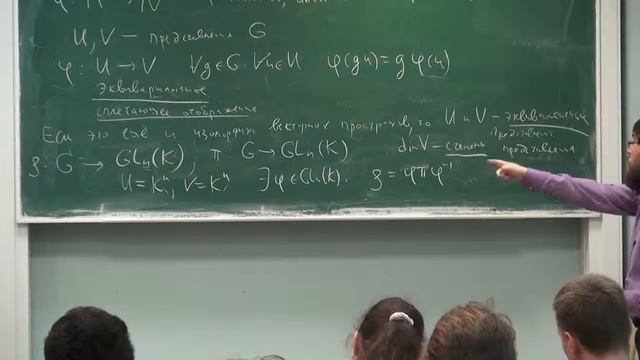 U, V — представления G
φ: U → V ∀g∈G ∀u∈U φ(gu) = gφ(u)
эквивариантное
сплетающее отображение
Если это ещё и изоморфизм векторных пространств, то U и V — эквивалентные представления
dim V — степень представления
ρ: G → GLn(K), π: G → GLn(K)
U = Kⁿ, V = Kⁿ ∃φ∈GLn(K): ρ = φπφ⁻¹